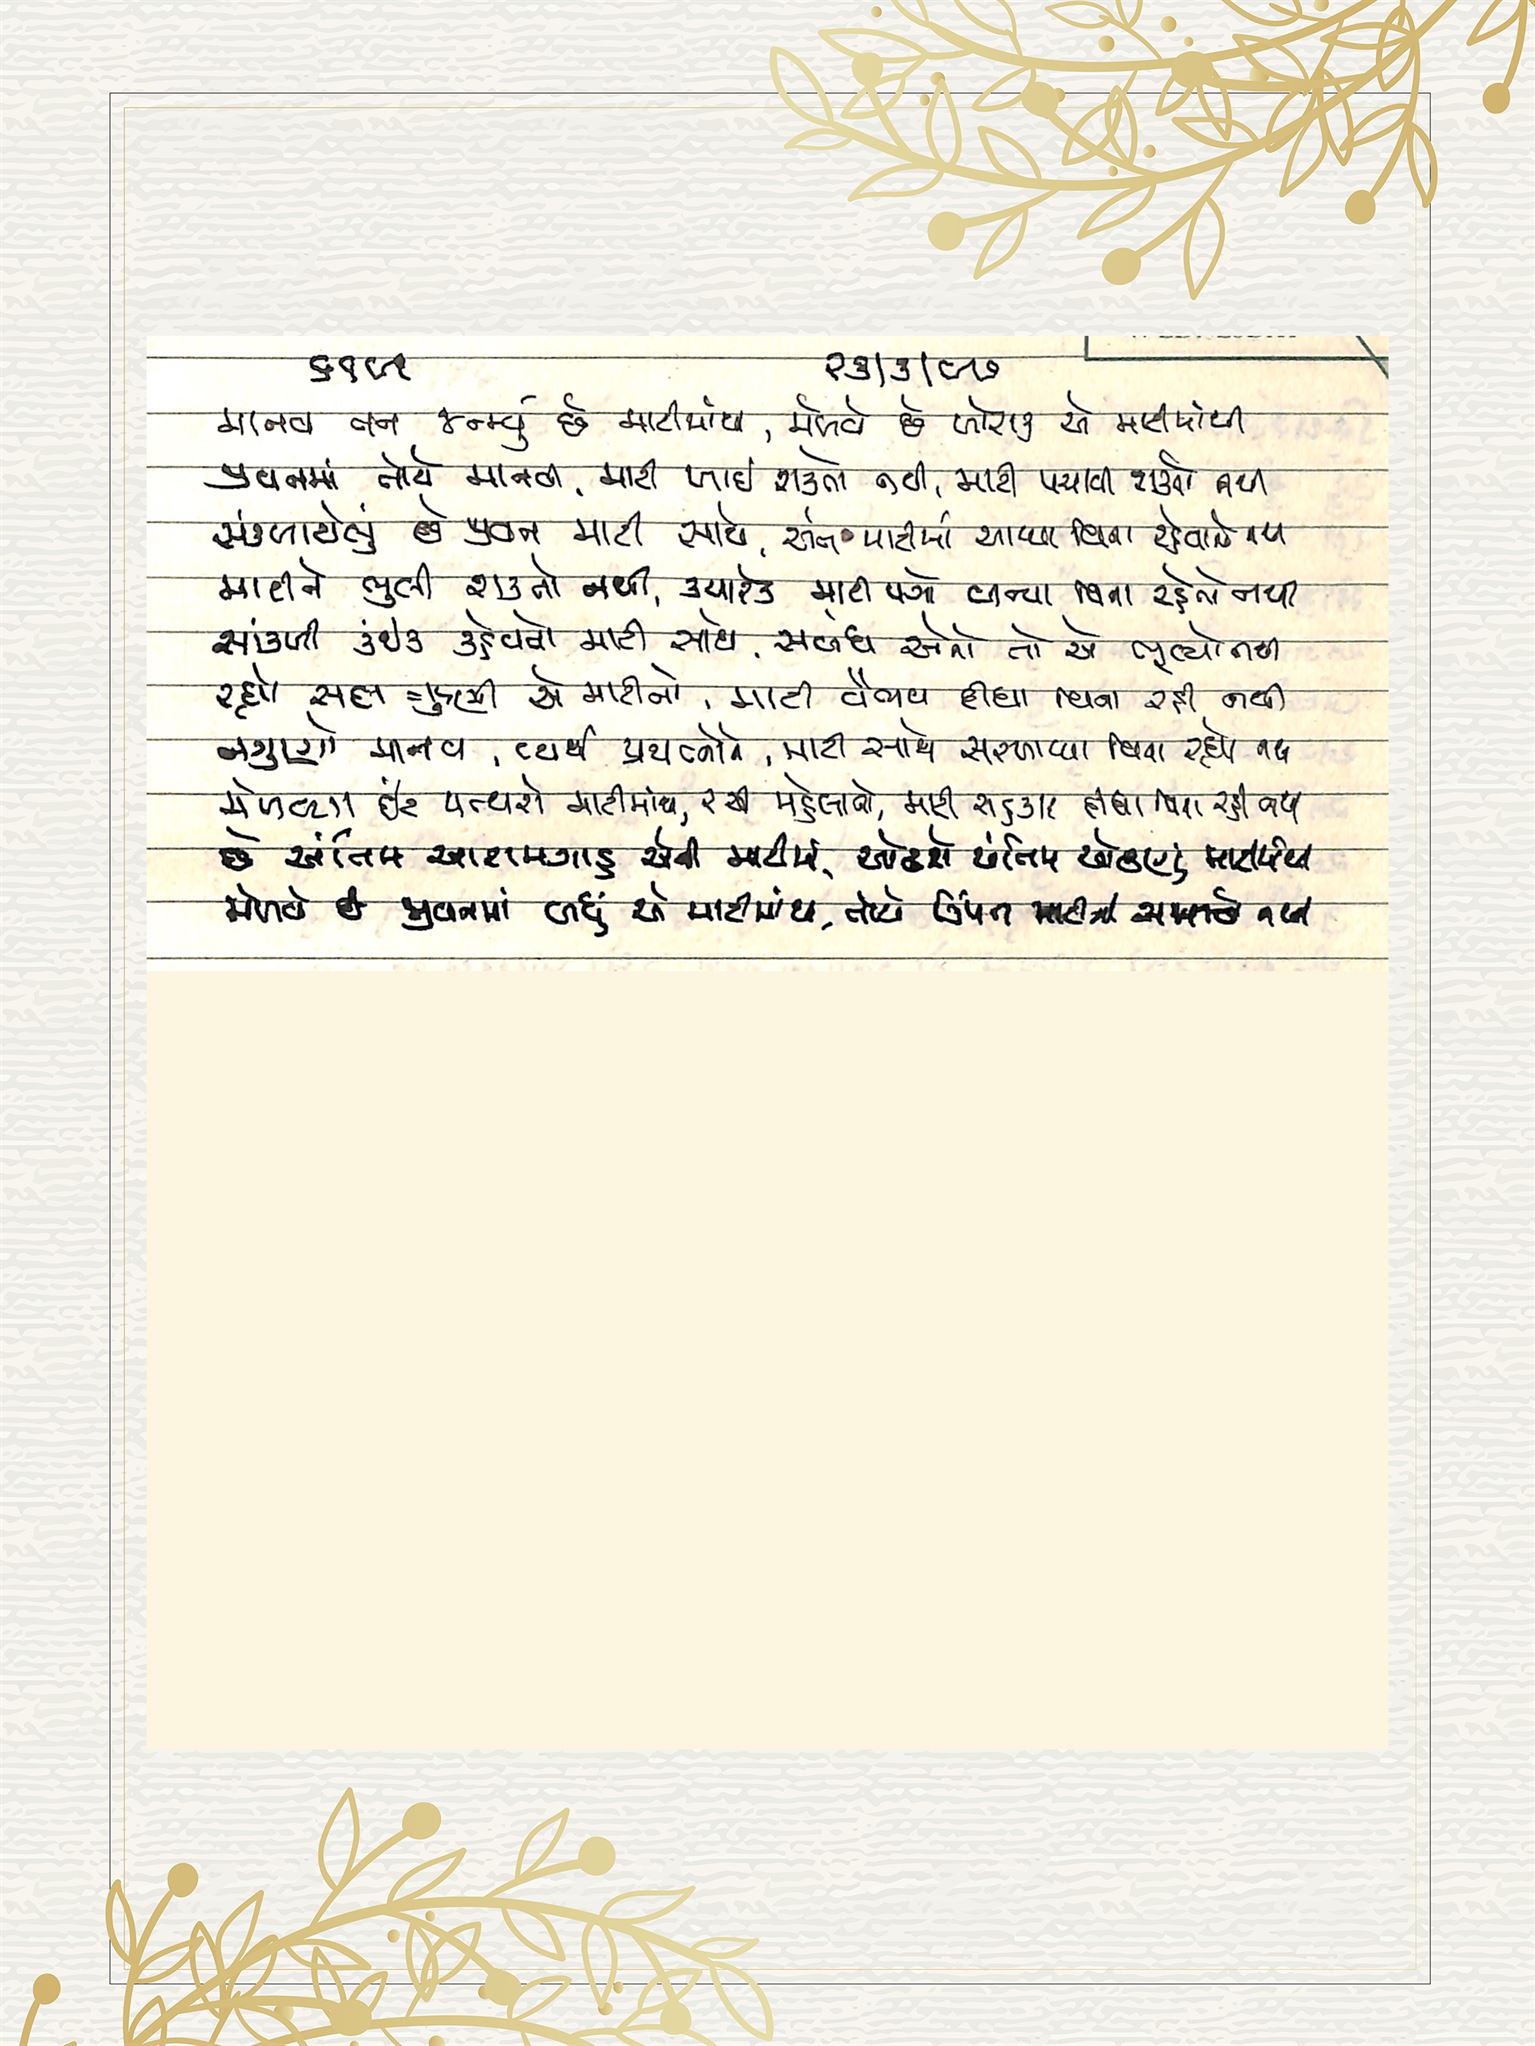 ૨૩/૩/૯૭
માનવ તન જન્મ્યું છે માટીમાંથી, મેળવે છે ખોરાક એ માટીમાંથી
જીવનમાં તોયે માનવી, માટી ખાઈ શકતો નથી, માટી પચાવી શકતો નથી
સંકળાયેલું છે જીવન માટી સાથે, અંત માટીમાં આવ્યા વિના રહેવાનો નથી
માટીને ભુલી શકતો નથી, ક્યારેક માટી પગો બન્યા વિના રહેતો નથી
સાંકળી કંઈક કહેવતો માટી સાથે, સબંધ એનો તો એ ભૂલ્યો નથી
રહ્યો સદા એ માટીનો, માટી વૈભવ દીધા વિના રહી નથી
માનવ, વ્યર્થ પ્રયત્નોને, માટી સાથે સરખાવ્યા વિના રહ્યો નથી
મેળવતા ઈંટ પત્થરો માટીમાંથી, રચી મહેલાતો, માટી સહકાર દીધા વિના રહી નથી
છે અંતિમ આરામગાહ એની માટીમાં, ઓઢશે અંતિમ ઓઢણું માટીમાંથી
મેળવે છે જીવનમાં બધું એ માટીમાંથી, તોયે માટીની નથી